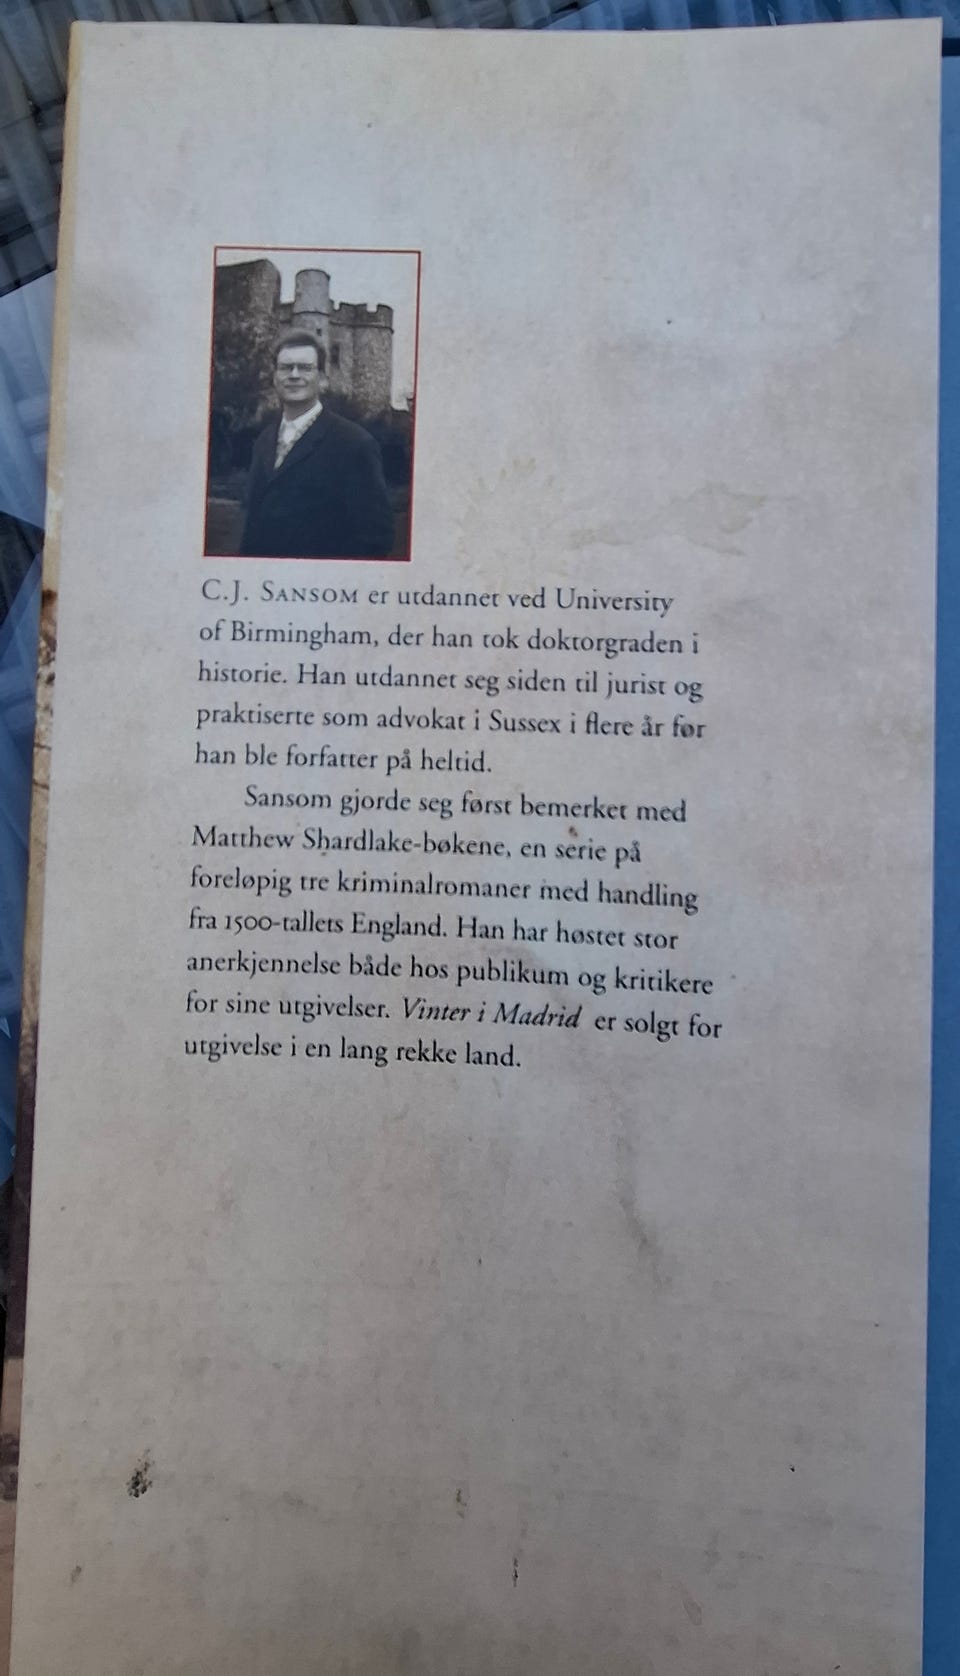 C.J. SANSOM er utdannet ved University
of Birmingham, der han tok doktorgraden i
historie. Han utdannet seg siden til jurist og
praktiserte som advokat i Sussex i flere år før
han ble forfatter på heltid.
Sansom gjorde seg først bemerket med
Matthew Shardlake-bøkene, en serie på
foreløpig tre kriminalromaner med handling
fra 1500-tallets England. Han har høstet stor
anerkjennelse både hos publikum og kritikere
for sine utgivelser. Vinter i Madrid er solgt for
utgivelse i en lang rekke land.